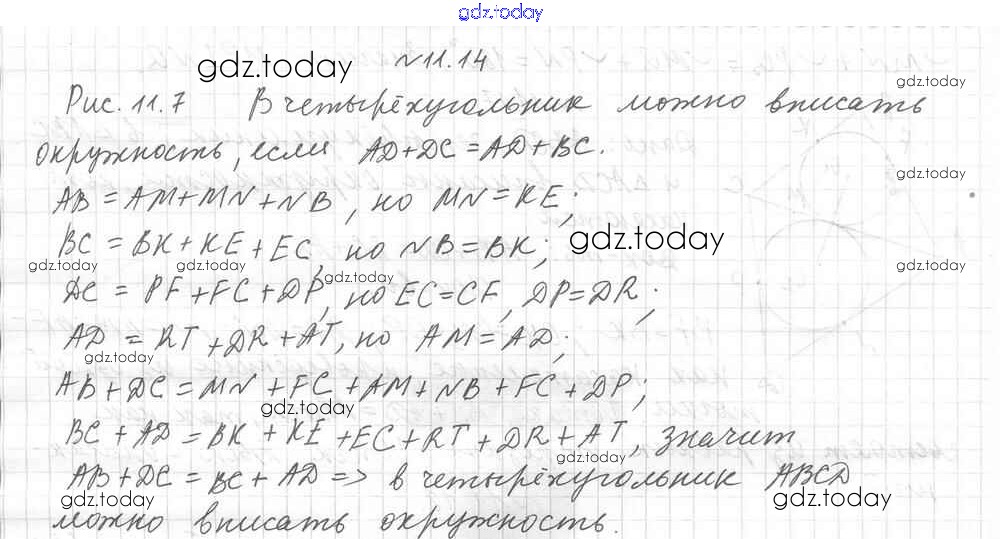 gdz.today
№11.14
gdz.today
Рис. 11.7 В четырёхугольник можно вписать
gdz.today
окружность, если AD+DC=AD+BC.
gdz.today
AB=AM+MN+NB, но MN=KE;
BC=BK+KE+EC, но NB=BK;
gdz.today
gdz.today gdz.today gdz.today gdz.today
DC=PF+FC+DP, но EC=CF, DP=DR;
AD=RT+DR+AT, но AM=AD;
gdz.today
AB+DC=MN+FC+AM+NB+FC+DP;
gdz.today
BC+AD=BK+KE+EC+RT+DR+AT, значит
gdz.today
AB+DC=BC+AD=> в четырёхугольник ABCD
gdz.today gdz.today gdz.today
можно вписать окружность.